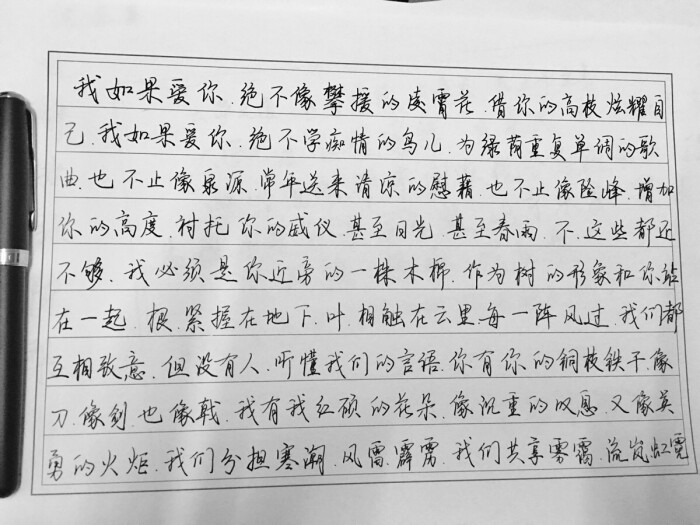 我如果爱你.绝不像攀援的凌霄花.借你的高枝炫耀自
己.我如果爱你.绝不学痴情的鸟儿.为绿荫重复单调的歌
曲.也不止像泉源.常年送来清凉的慰藉.也不止像险峰.增加
你的高度.衬托你的威仪.甚至日光.甚至春雨.不.这些都还
不够.我必须是你近旁的一株木棉.作为树的形象和你站
在一起.根.紧握在地下.叶.相触在云里.每一阵风过.我们都
互相致意.但没有人.听懂我们的言语.你有你的铜枝铁干.像
刀.像剑.也像戟.我有我红硕的花朵.像沉重的叹息.又像英
勇的火炬.我们分担寒潮.风雷.霹雳.我们共享雾霭.流岚虹霓